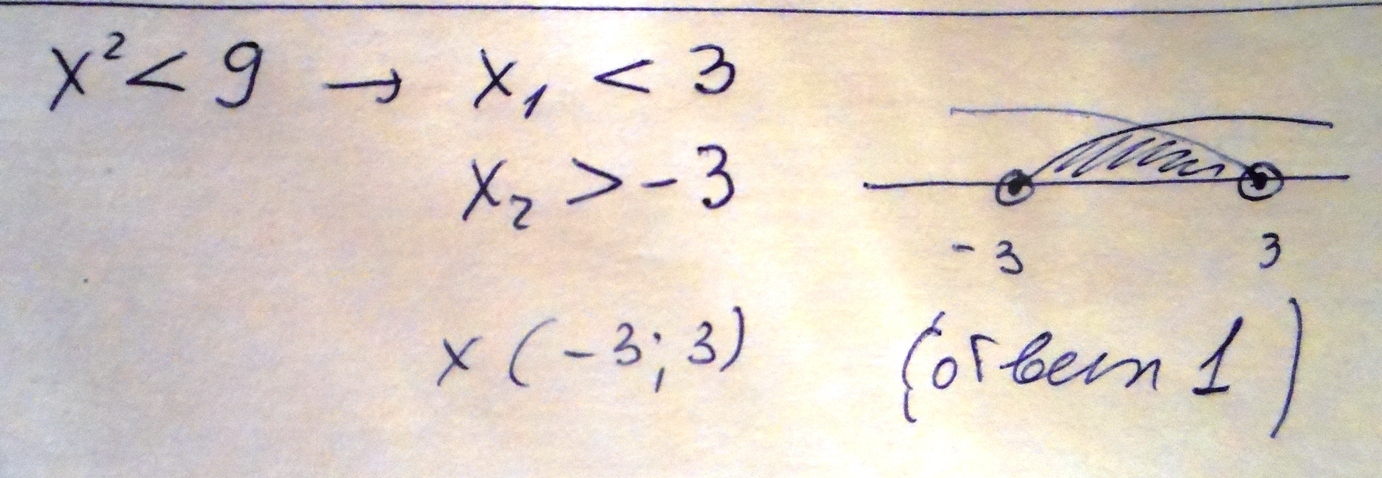 x² < 9 → x₁ < 3
x₂ > -3
-3 3
x (-3; 3) (ответ 1)